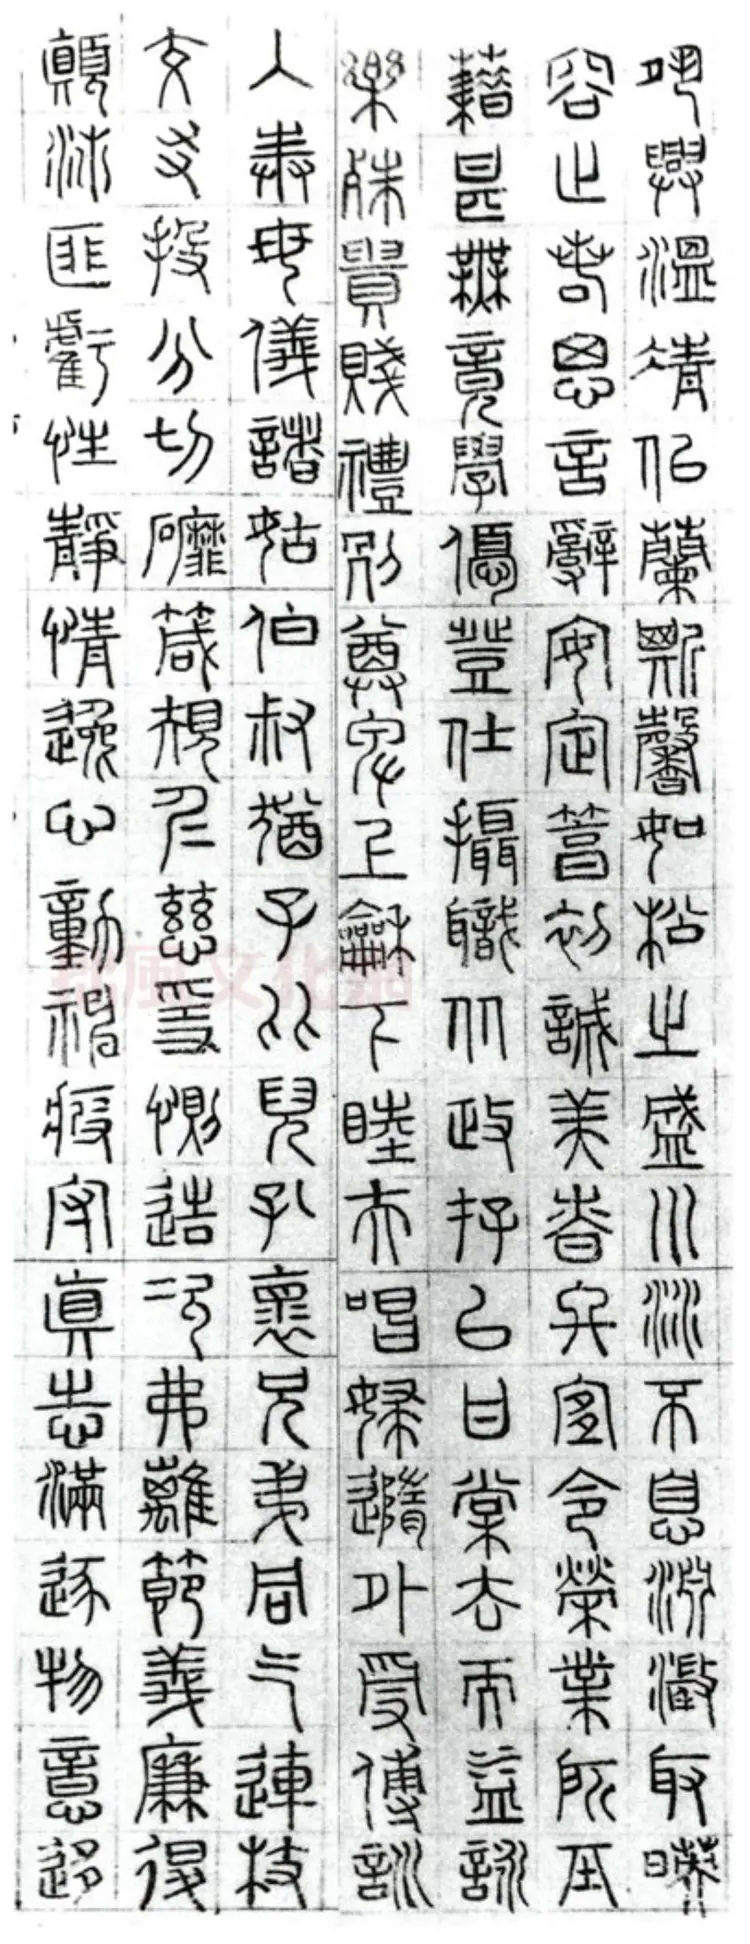 夙興溫凊似蘭斯馨如松之盛川流不息淵澂取暎
容止若思言辭安定篤初誠美慎終宜令榮業所基
籍甚無竟學優登仕攝職從政存以甘棠去而益詠
樂殊貴賤禮別尊卑上龢下睦夫唱婦隨外受傅訓
入奉母儀諸姑伯叔猶子比兒孔懷兄弟同气連枝
交友投分切磨箴規仁慈隱惻造次弗離節義廉退
顛沛匪虧性靜情逸心動神疲守真志滿逐物意移
風文化網